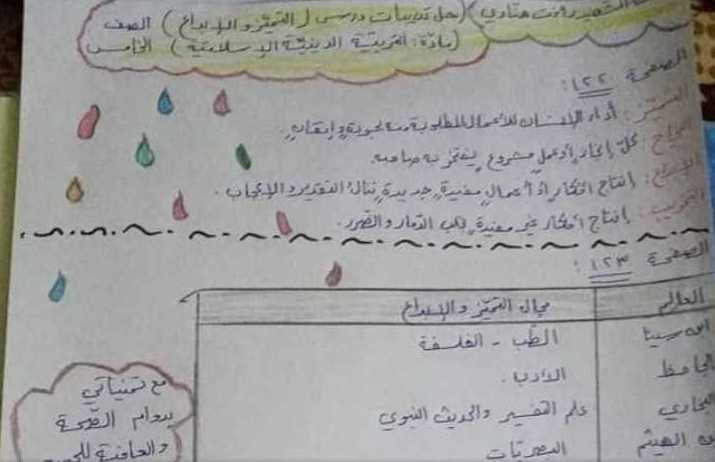 (حل تدريبات درسي (التميّز والإبداع) الصف
(مادّة: التربية الدينيّة الإسلاميّة) الخامس
الصفحة ١٢٢:
التميّز: أداء الإنسان للأعمال المطلوبة منه بجودة وإتقان.
النجاح: كلّ إنجاز أو عمل مشروع يفتخر به صاحبه
الإبداع: إنتاج أفكار أو أعمال مفيدة جديدة تنال التقدير والإعجاب.
التخريب: إنتاج أفكار غير مفيدة تجلب الدّمار والضّرر.
الصفحة ١٢٣:
العالم مجال التميّز والإبداع
ابن سينا الطّب - الفلسفة
الجاحظ الأدب.
البخاري علم التفسير والحديث النبوي
ابن الهيثم البصريّات
مع تمنياتي
بدوام الصّحة
والعافية